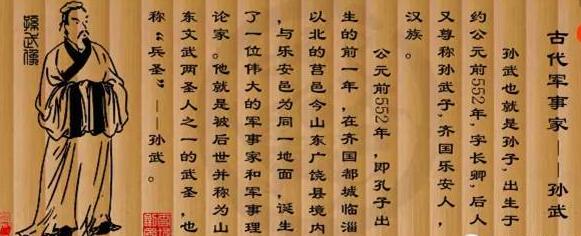 古代军事家——孙武
孙武也就是孙子，出生于
约公元前552年，字长卿，后人
又尊称孙武子，齐国乐安人，
汉族。
公元前552年，即孔子出
生的前一年，在齐国都城临淄
以北的莒邑今山东广饶县境内
，与乐安邑为同一地面，诞生
了一位伟大的军事家和军事理
论家。他就是被后世并称为山
东文武两圣人之一的武圣，也
称“兵圣”——孙武。
孙武像